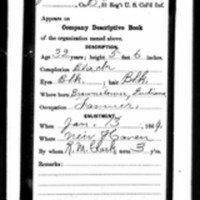 B, 31 Reg't U. S. Col'd Inf.
Appears on
Company Descriptive Book
of the organization named above.
DESCRIPTION.
Age 32 years; height 5 feet 6 inches.
Complexion Black
Eyes Blk.; hair Blk.
Where born Brownstown, Indiana
Occupation Farmer
ENLISTMENT.
When Jan. 13, 1864.
Where New Haven
By whom R. M. Clark; term 3 y'rs.
Remarks: